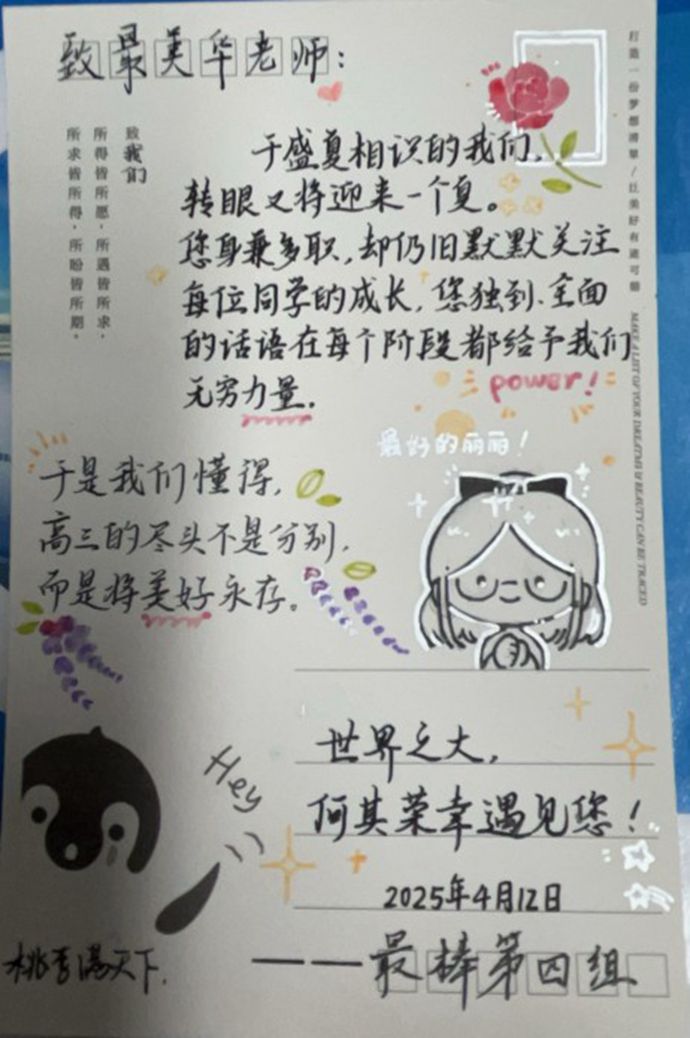 致最美华老师：
于盛夏相识的我们，
转眼又将迎来一个夏。
您身兼多职，却仍旧默默关注
每位同学的成长，您独到、全面
的话语在每个阶段都给予我们
无穷力量。
power!
致我们
所得皆所愿，所遇皆所求，
所求皆所得，所盼皆所期。
打造一份梦想清单/让美好有迹可循
MAKE A LIST OF YOUR DREAMS & BEAUTY CAN BE TRACED
最好的丽丽！
于是我们懂得，
高三的尽头不是分别，
而是将美好永存。
Hey
世界之大，
何其荣幸遇见您！
2025年4月12日
桃李满天下.
——最棒第四组